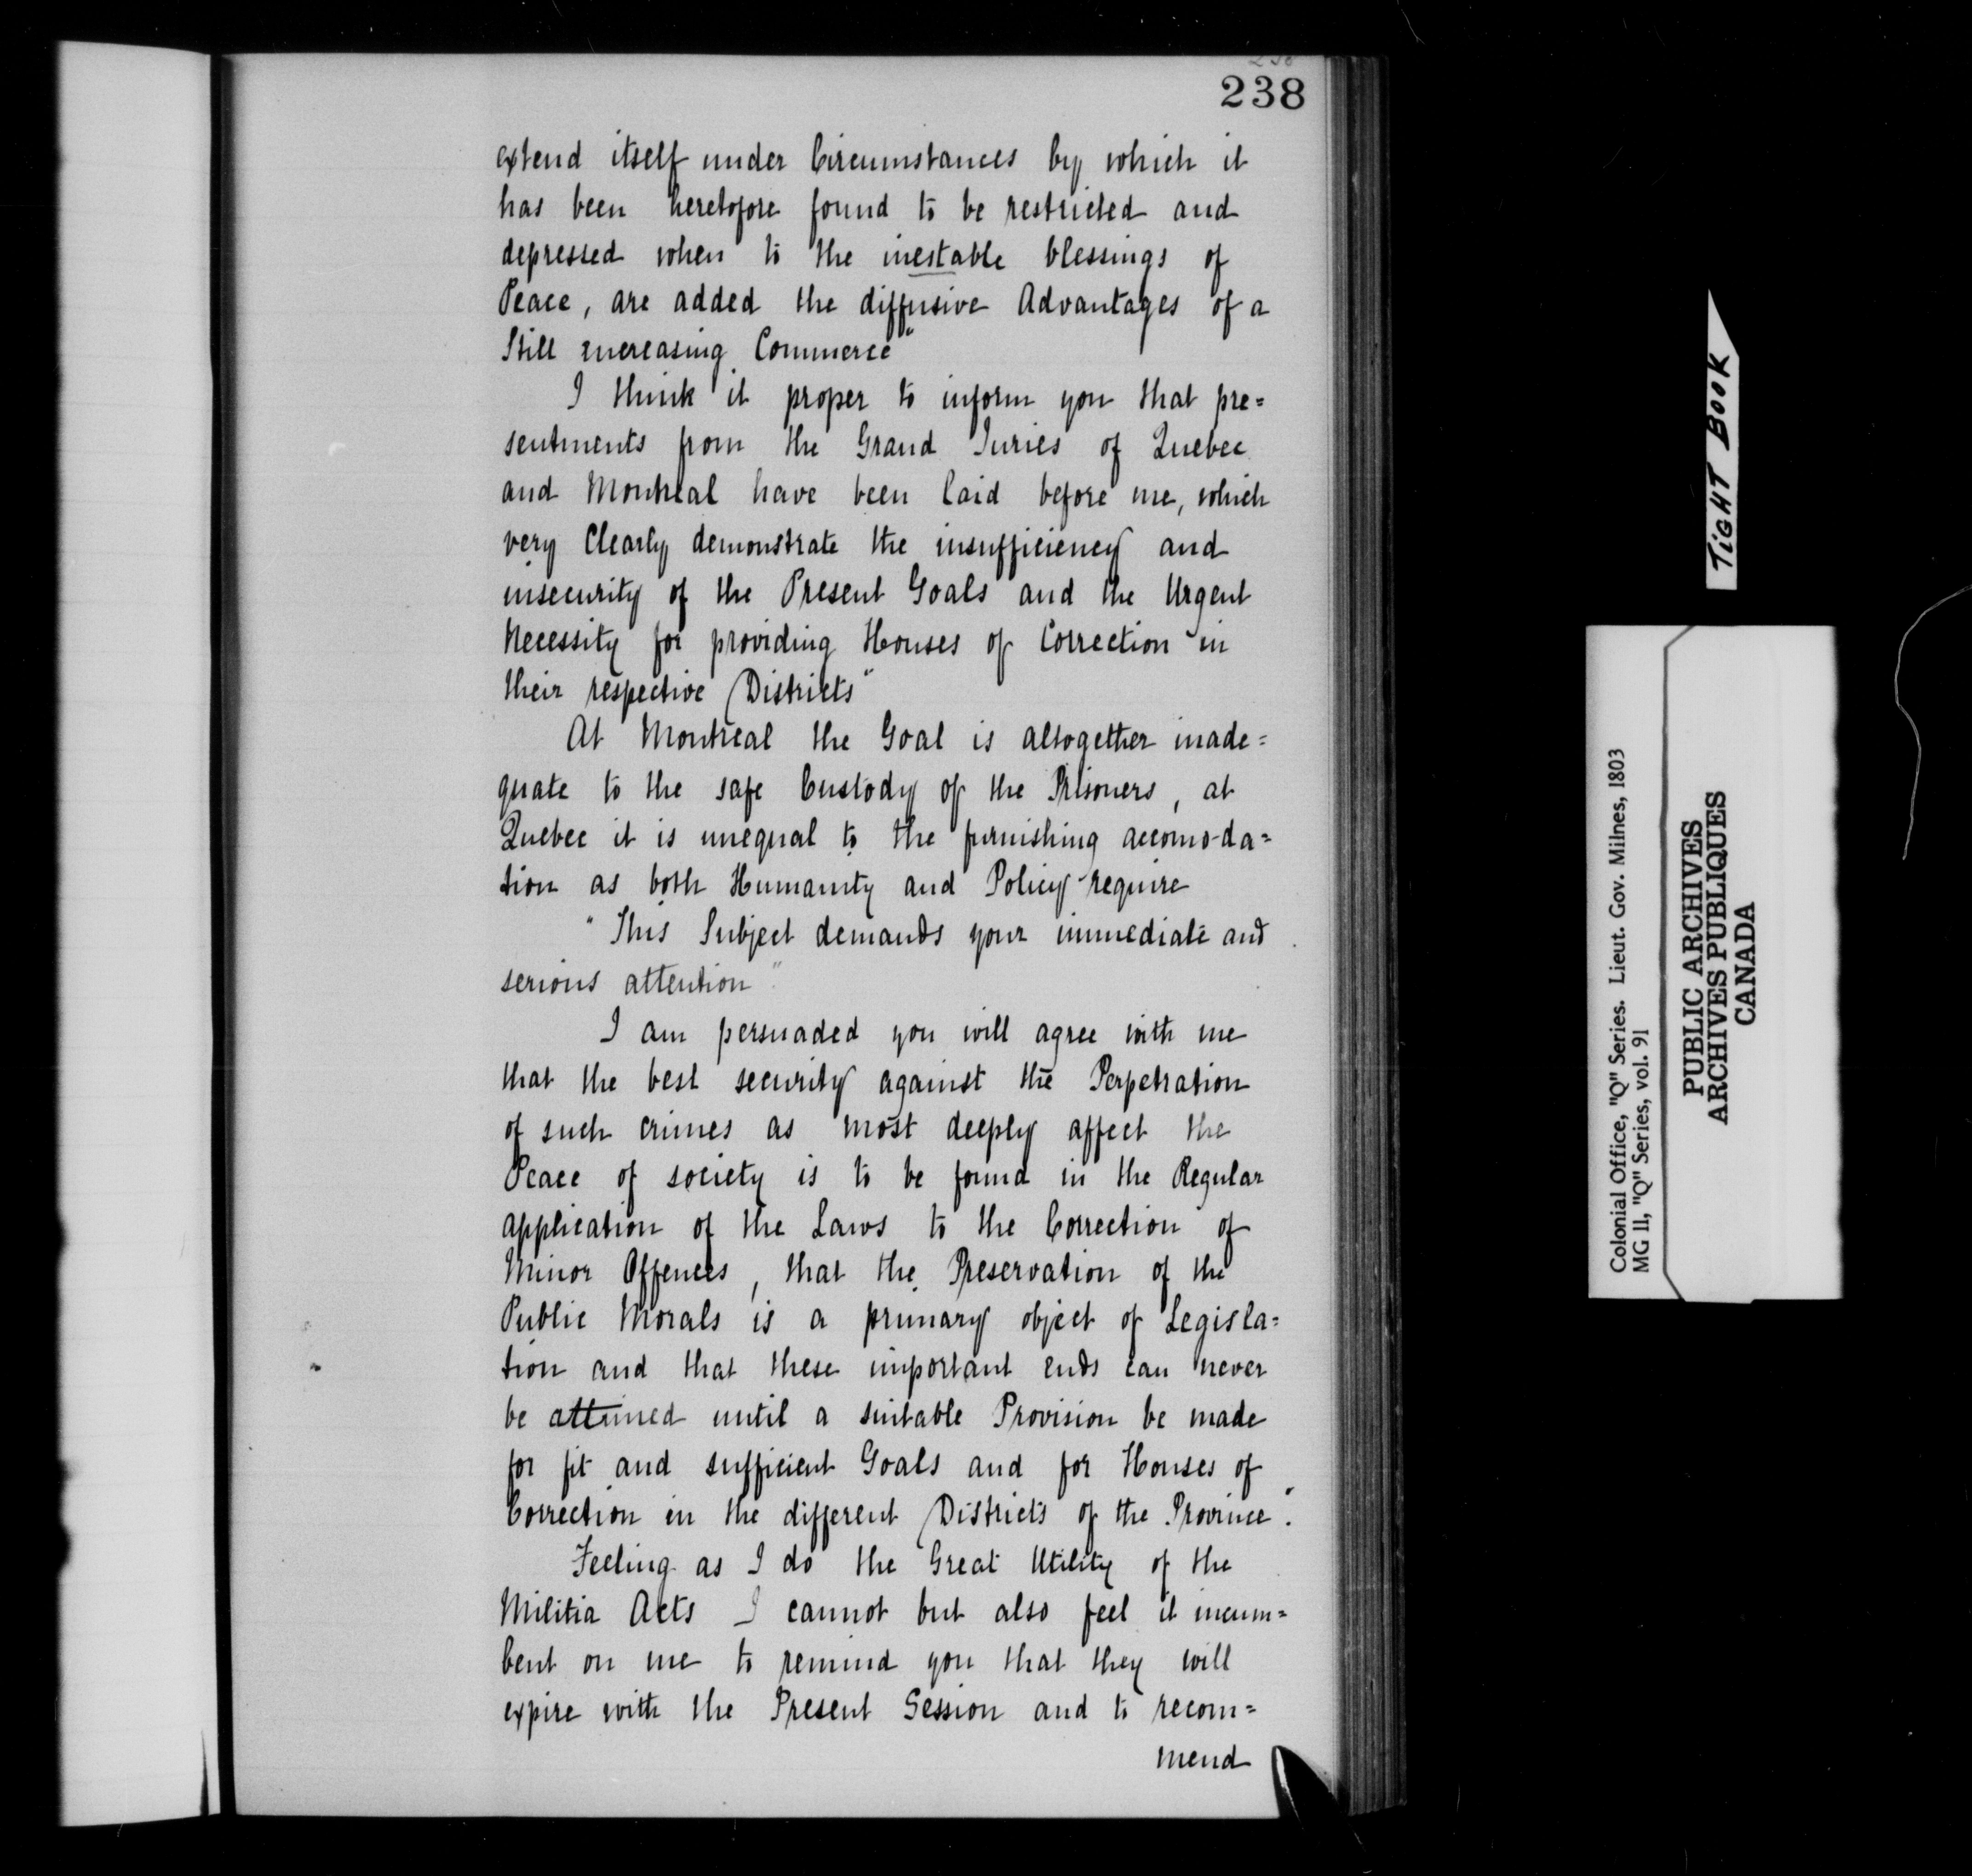 238
extend itself under Circumstances by which it
has been heretofore found to be restricted and
depressed when to the inestable blessings of
Peace, are added the diffusive Advantages of a
Still increasing Commerce"
I think it proper to inform you that pre=
sentments from the Grand Juries of Quebec
and Montreal have been laid before me, which
very Clearly demonstrate the insufficiency and
insecurity of the Present Goals and the Urgent
Necessity for providing Houses of Correction in
their respective Districts"
At Montreal the Goal is altogether inade=
quate to the safe Custody of the Prisoners, at
Quebec it is unequal to the furnishing accomo-da=
tion as both Humanity and Policy require
"This Subject demands your immediate and
serious attention"
I am persuaded you will agree with me
that the best security against the Perpetration
of such crimes as most deeply affect the
Peace of society is to be found in the Regular
application of the Laws to the Correction of
Minor Offences, that the Preservation of the
Public Morals is a primary object of Legisla=
tion and that these important ends can never
be attained until a suitable Provision be made
for fit and sufficient Goals and for Houses of
Correction in the different Districts of the Province."
Feeling as I do the Great Utility of the
Militia Acts I cannot but also feel it incum=
bent on me to remind you that they will
expire with the Present Session and to recom=
mend
TIGHT BOOK
Colonial Office, "Q" Series. Lieut. Gov. Milnes, 1803
MG 11, "Q" Series, vol. 91
PUBLIC ARCHIVES
ARCHIVES PUBLIQUES
CANADA